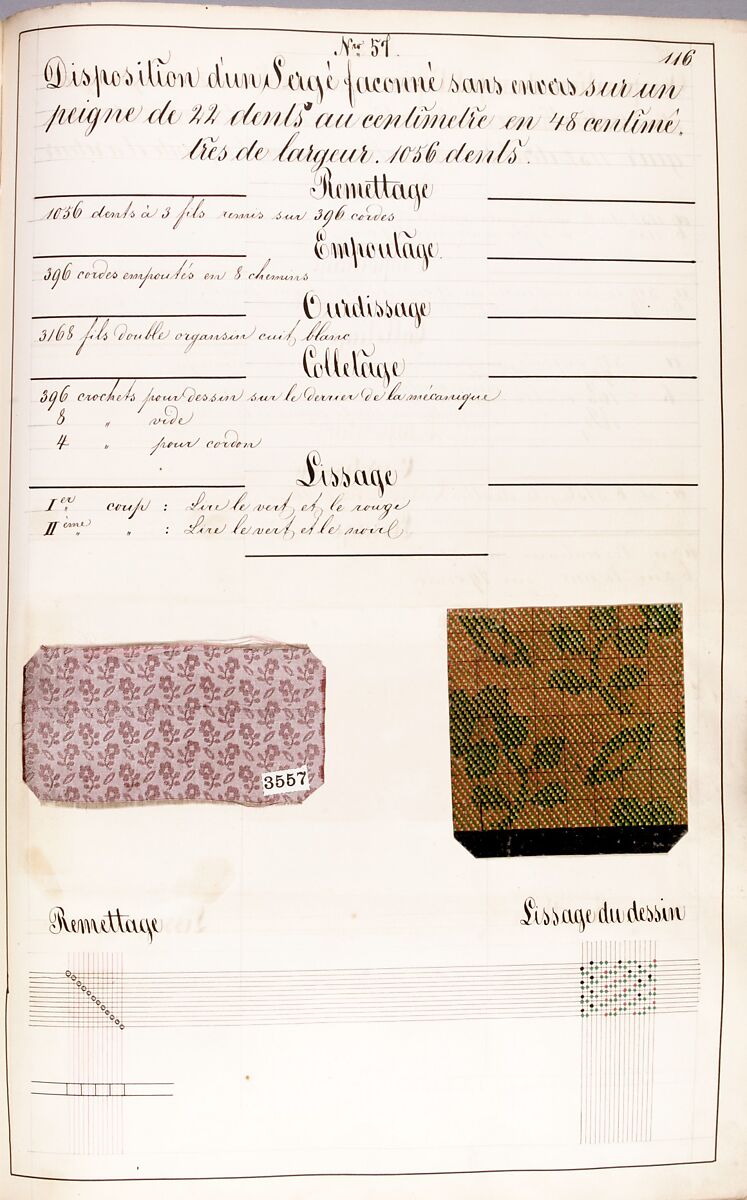 Nro 57.
116
Disposition d'un Sergé façonné sans envers sur un
peigne de 22 dents au centimetre en 48 centimé,
tres de largeur. 1056 dents.
Remettage
1056 dents à 3 fils remis sur 396 cordes
Empoutage.
396 cordes empoutés en 8 chemins
Ourdissage
3168 fils double organsin cuit blanc
Colletage
396 crochets pour dessin sur le derrier de la mécanique
8 " vide
4 " pour cordon
Lissage
Ier " coup : Lire le vert et le rouge
IIième " " : Lire le vert et le noir
3557
Remettage
Lissage du dessin